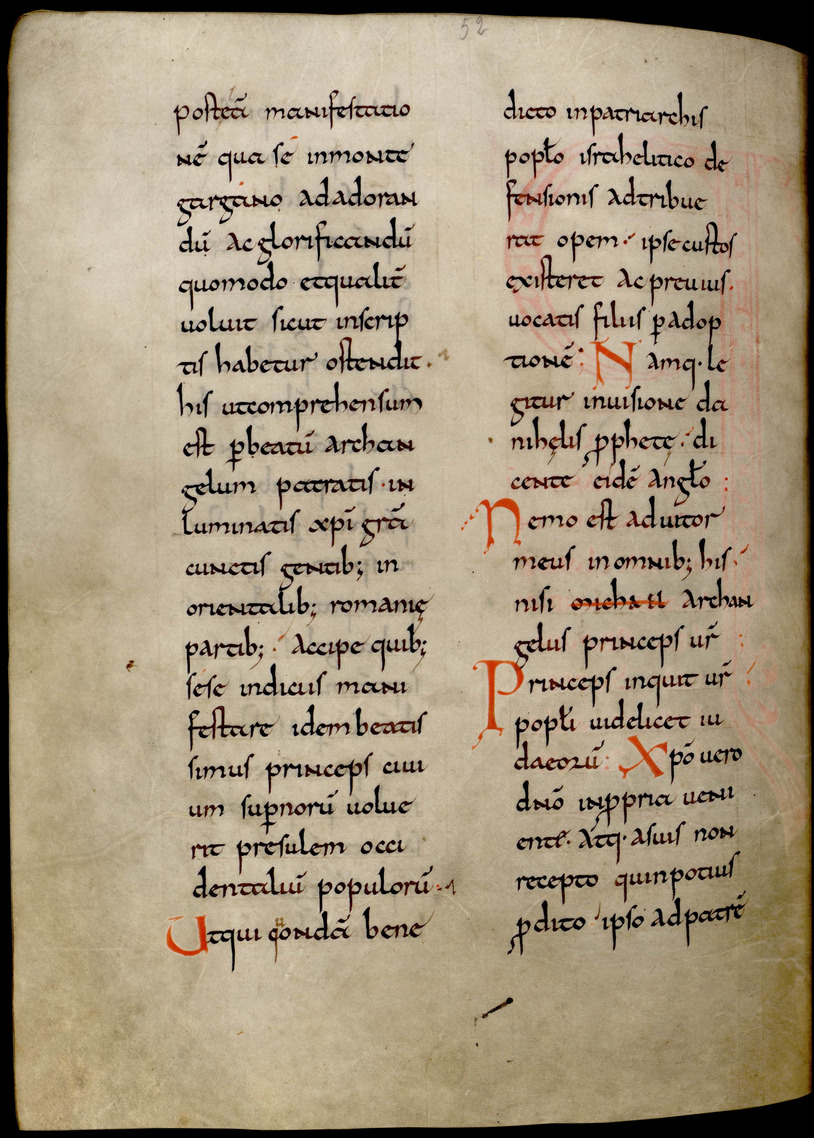 52
posteā manifestatio
nē qua sē inmonte
gargano adadoran
dū acglorificandū
quomodo etqualit̄
uoluit sicut inscrip
tis habetur ostendit.
his utcomprehensum
est ꝑbeatū archan
gelum patratis in
luminatis xp̄i gr̄a
cunctis gentib; in
orientalib; romanię
partib; Accipe quib;
sese indiciis mani
festare idembeatis
simus princeps ciui
um suꝑnorū uolue
rit presulem occi
dentaliū populorū.
Utqui qondā bene
dicto inpatriarchis
popl̄o israhelitico de
fensionis adtribue
rat opem. ipsecustos
existeret ac preuius.
uocatis filiis ꝑadop
tionē: Namq. le
gitur inuisione da
nihelis ꝓphetę. di
cente eidē angl̄o:
Nemo est adiutor
meus inomnib; his
nisi michahel archan
gelus princeps ur̄
Princeps inquit ur̄
popl̄i uidelicet iu
daeorū: Xp̄o uero
dn̄o inꝓpria ueni
ente. Atq. asuis non
recepto quinpotius
ꝓdito ipso adpatrē